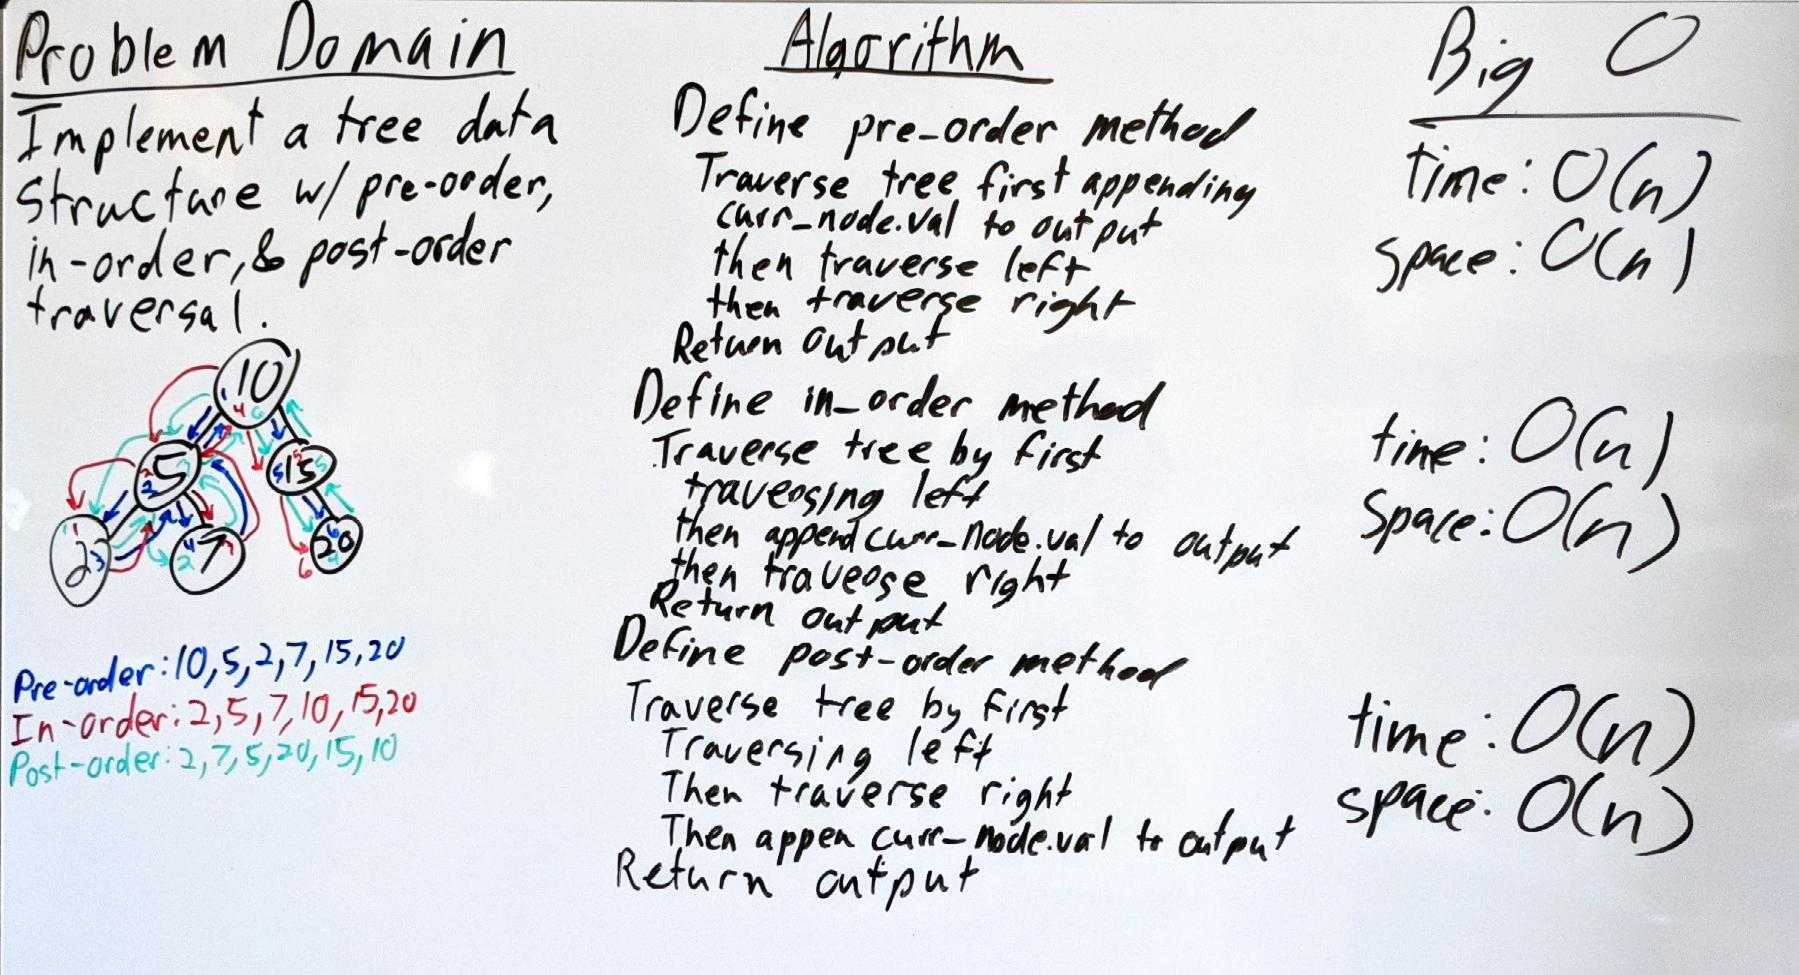 Problem Domain
Implement a tree data
structure w/ pre-order,
in-order, & post-order
traversal.
10
5
15
2
7
20
Pre-order: 10, 5, 2, 7, 15, 20
In-order: 2, 5, 7, 10, 15, 20
Post-order: 2, 7, 5, 20, 15, 10
Algorithm
Define pre-order method
Traverse tree first appending
curr_node.val to output
then traverse left
then traverse right
Return output
Define in_order method
Traverse tree by first
traversing left
then append curr_node.val to output
then traverse right
Return output
Define post-order method
Traverse tree by first
Traversing left
Then traverse right
Then appen curr_node.val to output
Return output
Big O
time: O(n)
space: O(n)
time: O(n)
Space: O(n)
time: O(n)
space: O(n)